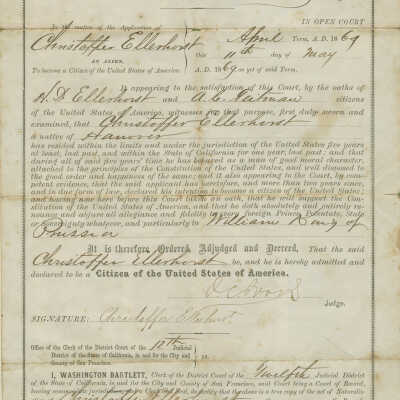 IN OPEN COURT
In the matter of the Application of
April Term, A. D. 1869
Christoffer Ellerhorst
this 11th day of May
AN ALIEN,
To become a Citizen of the United States of America.
A. D. 1869 as yet of said Term.
It appearing to the satisfaction of this Court, by the oaths of
H. D. Ellerhorst and A. C. citizens
of the United States of America, witnesses for that purpose, first duly sworn and
examined, that Christoffer Ellerhorst
a native of Hanover
has resided within the limits and under the jurisdiction of the United States five years
at least, last past, and within the State of California for one year, last past; and that
during all of said five years' time he has behaved as a man of good moral character,
attached to the principles of the Constitution of the United States, and well disposed to
the good order and happiness of the same; and it also appearing to the Court, by com-
petent evidence, that the said applicant has heretofore, and more than two years since,
and in due form of law, declared his intention to become a citizen of the United States;
and having now here before this Court taken an oath, that he will support the Con-
stitution of the United States of America, and that he doth absolutely and entirely re-
nounce and abjure all allegiance and fidelity to every foreign Prince, Potentate, State
or Sovereignty whatever, and particularly to William King of
Prussia
It is therefore Ordered, Adjudged and Decreed, That the said
Christoffer Ellerhorst be, and he is hereby admitted and
declared to be a Citizen of the United States of America.
Judge.
SIGNATURE: Christoffer Ellerhorst
Office of the Clerk of the District Court of the 12th Judicial
District of the State of California, in and for the City and
County of San Francisco.
ss.
I, WASHINGTON BARTLETT, Clerk of the District Court of the Twelfth Judicial District
of the State of California, in and for the City and County of San Francisco, said Court being a Court of Record,